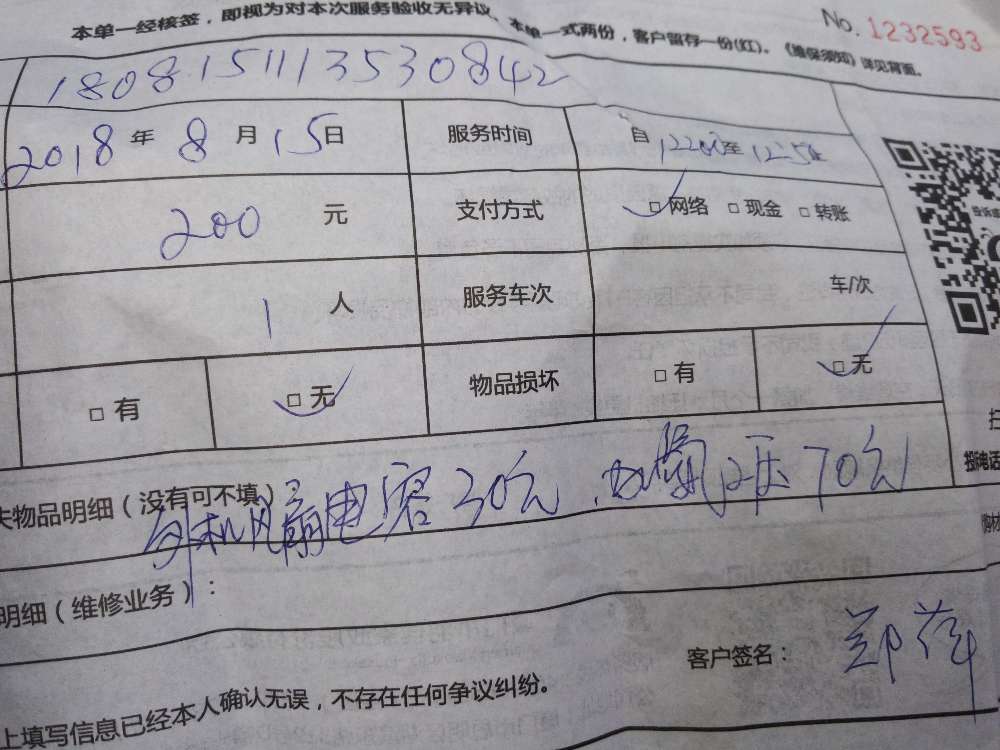 本单一经核签，即视为对本次服务验收无异议、本单一式两份，客户留存一份(红)。《维保须知》详见背面。
No. 1232593
1808151113530842
2018 年 8 月 15 日 服务时间 自 1220 至 1250
200 元 支付方式 □网络 □现金 □转账
1 人 服务车次 车/次
□有 □无 物品损坏 □有 □无
失物品明细（没有可不填）
外机风扇电容30元、加氟 70元
明细（维修业务）：
客户签名：郑萍
上填写信息已经本人确认无误，不存在任何争议纠纷。